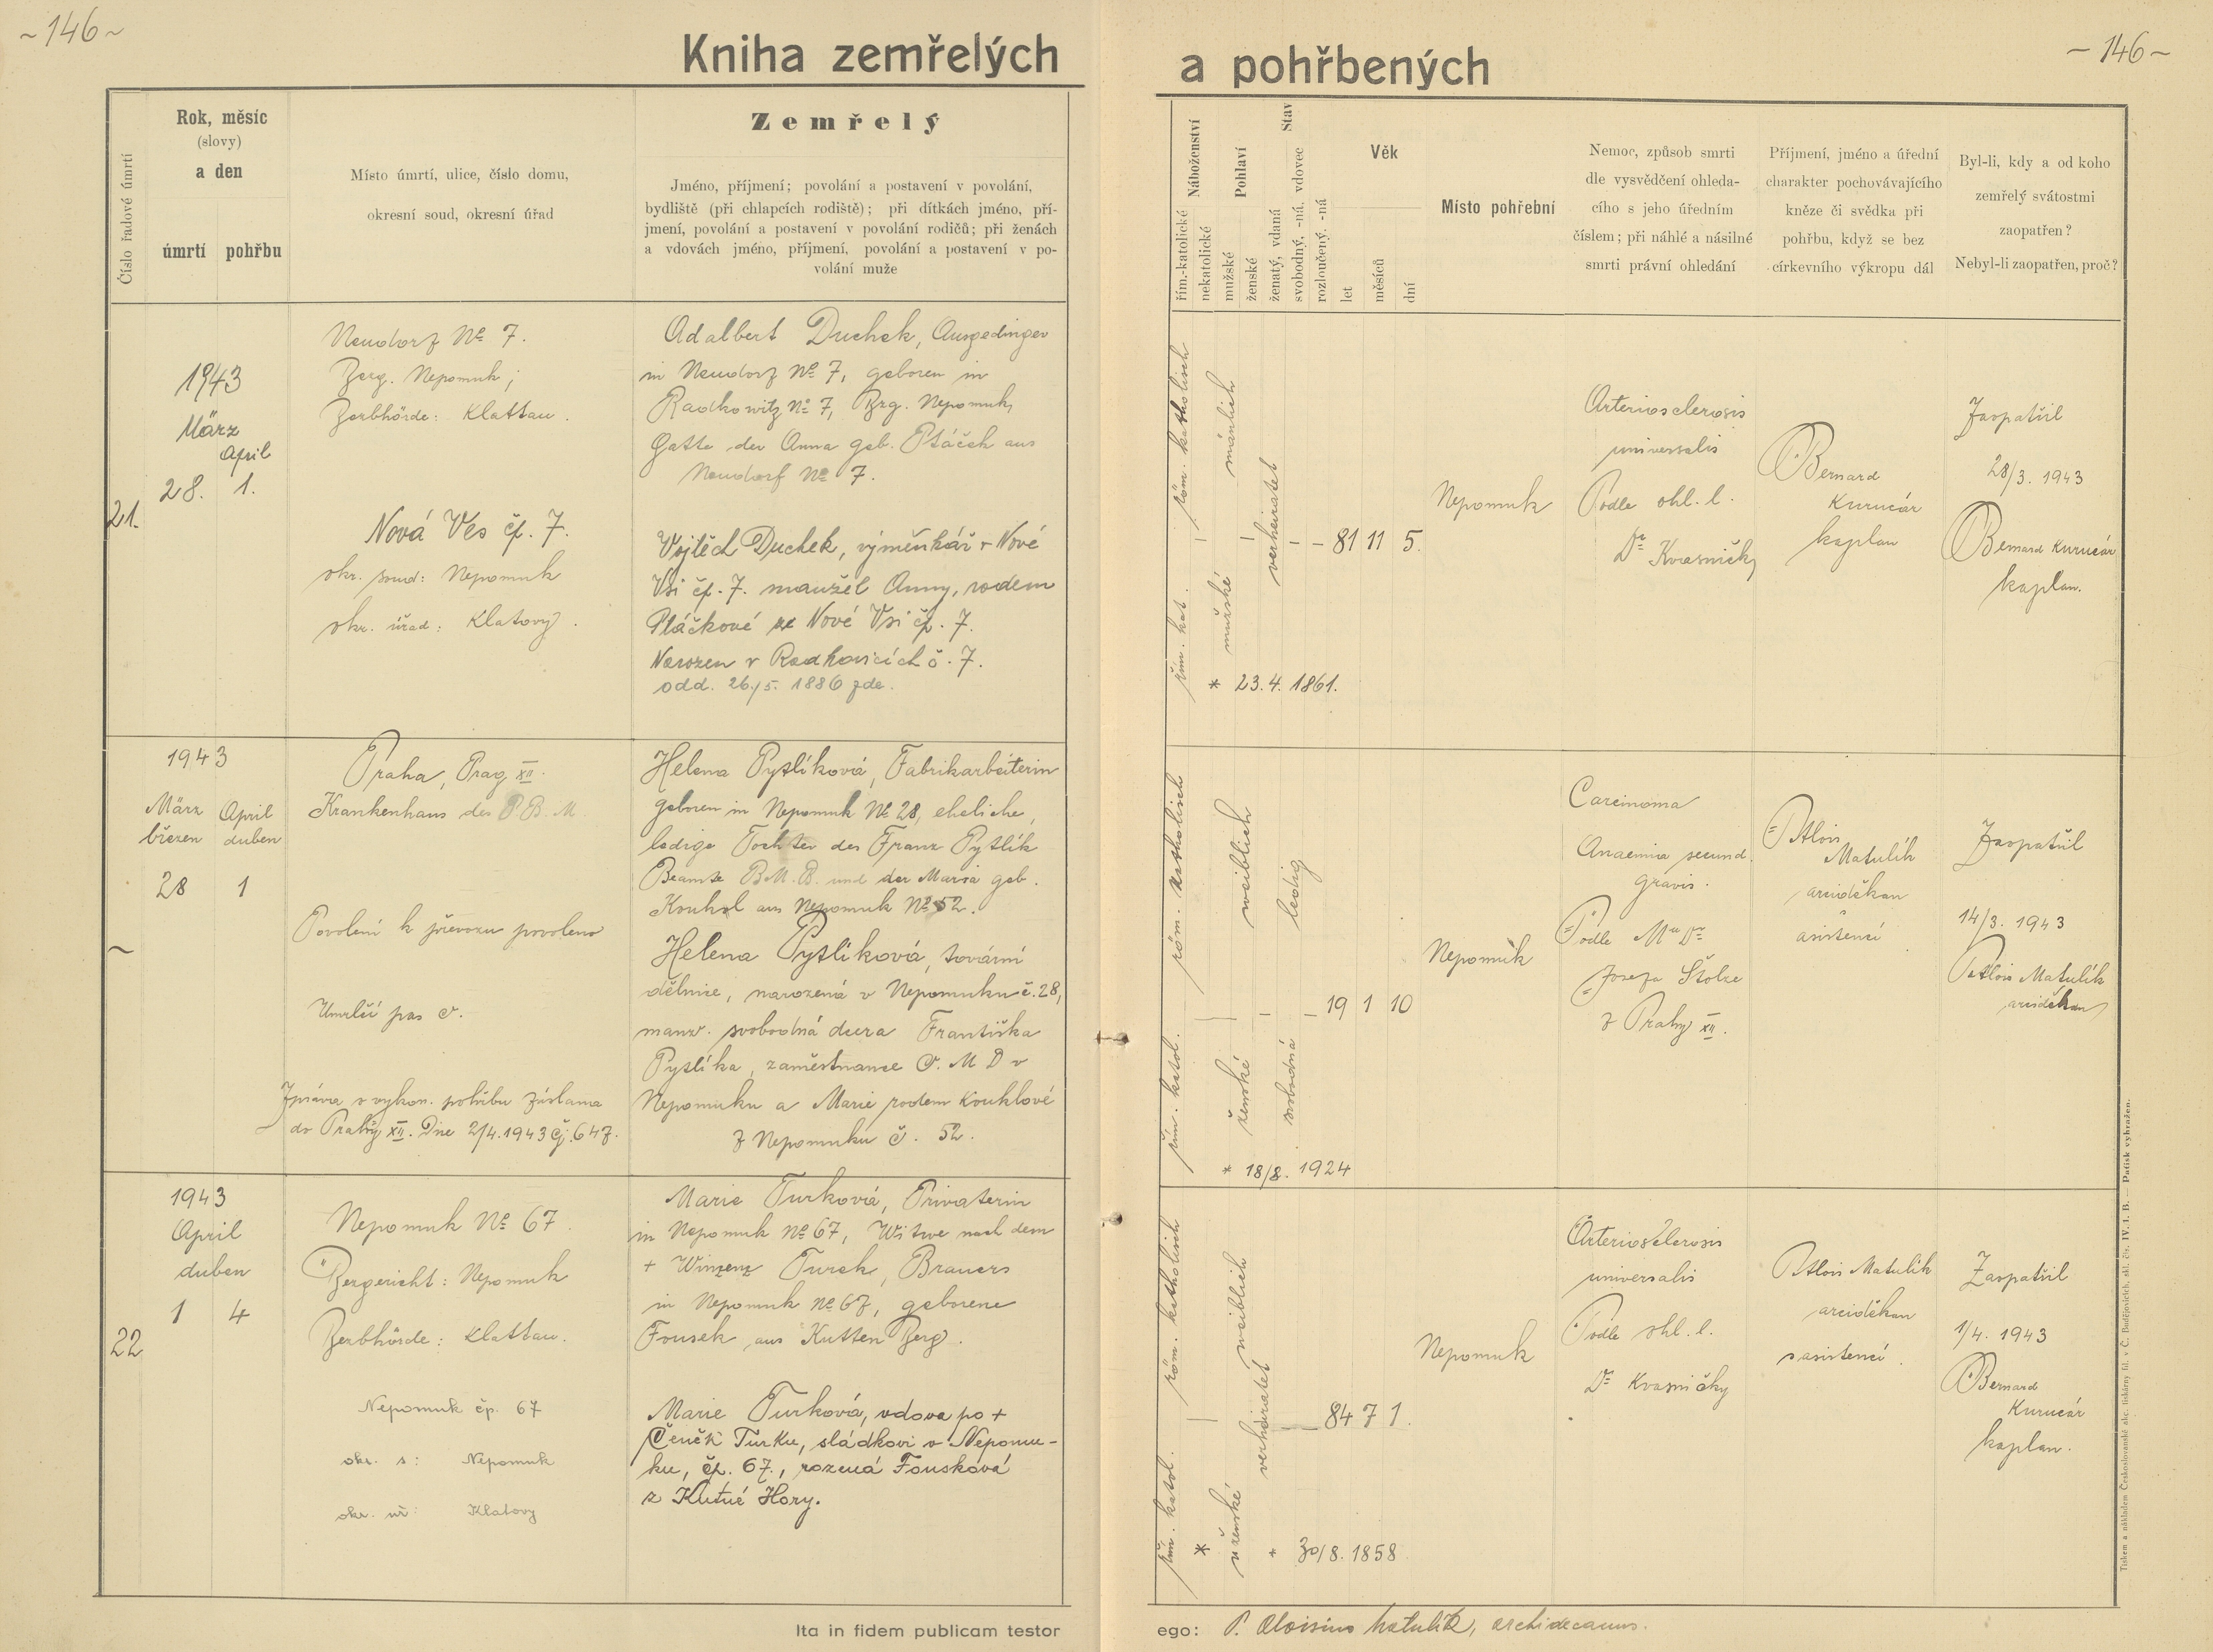 ~146~
Kniha zemřelých
a pohřbených
~146~
Číslo řadové úmrtí
Rok, měsíc
(slovy)
a den
úmrtí
pohřbu
Místo úmrtí, ulice, číslo domu,
okresní soud, okresní úřad
Zemřelý
Jméno, příjmení; povolání a postavení v povolání,
bydliště (při chlapcích rodiště); při dítkách jméno, pří-
jmení, povolání a postavení v povolání rodičů; při ženách
a vdovách jméno, příjmení, povolání a postavení v po-
volání muže
Náboženství
řím.-katolické
nekatolické
Pohlaví
mužské
ženské
Stav
ženatý, vdaná
svobodný, -ná, vdovec
rozloučený, -ná
Věk
let
měsíců
dní
Místo pohřební
Nemoc, způsob smrti
dle vysvědčení ohleda-
cího s jeho úředním
číslem; při náhlé a násilné
smrti právní ohledání
Příjmení, jméno a úřední
charakter pochovávajícího
kněze či svědka při
pohřbu, když se bez
církevního výkropu dál
Byl-li, kdy a od koho
zemřelý svátostmi
zaopatřen?
Nebyl-li zaopatřen, proč?
21.
1943
März
April
28. 1.
Neudorf No 7.
Bzrg. Nepomuk;
Bezbhörde: Klattau.
Nová Ves čp. 7.
okr. soud: Nepomuk
okr. úřad: Klatovy.
Adalbert Duchek, Ausgedinger
in Neudorf No 7, geboren in
Radkowitz No 7, Bzrg. Nepomuk,
Gatte der Anna geb. Ptáček aus
Neudorf No 7.
Vojtěch Duchek, výměnkář v Nové
Vsi čp. 7. manžel Anny, rodem
Ptáčkové ze Nové Vsi čp. 7.
Narozen v Radkovicích č. 7.
odd. 26./5. 1886 zde.
röm. katholisch
řím. kat.
mänlich
mužské
verheiratet
81 11 5.
* 23.4. 1861.
Nepomuk
Arteriosclerosis
universalis
Podle ohl. l.
Dr Kvasničky
Bernard
Kurucár
kaplan
Zaopatřil
28/3. 1943
Bernard Kurucár
kaplan.
1943
März April
březen duben
28 1
Praha, Prag XII.
Krankenhaus des P.B.M.
Povolení k převozu povoleno
Umrlčí pas č.
Zpráva o vykon. pohřbu zaslána
do Prahy XII. Dne 2/4.1943 čj. 647.
Helena Pytlíková, Fabrikarbeiterin
geboren in Nepomuk No 28, eheliche,
ledige Tochter des Franz Pytlík
Beamte B.M.B. und der Maria geb.
Koukol aus Nepomuk No 52.
Helena Pytlíková, tovární
dělnice, narozená v Nepomuku č. 28,
manž. svobodná dcera Františka
Pytlíka, zaměstnance Č. M D v
Nepomuku a Marie rodem Kouklové
z Nepomuku č. 52.
röm. katholisch
řím. katol.
weiblich
ženské
ledig
svobodná
19 1 10
* 18/2. 1924
Nepomuk
Carcinoma
Anaemia secund.
gravis.
Podle MUDr
Josefa Štolze
z Prahy XII.
P. Alois
Matulík
arciděkan
asistencí
Zaopatřil
14/3. 1943
P. Alois Matulík
arciděkan
22
1943
April
duben
1 4
Nepomuk No 67.
Bezgericht: Nepomuk
Bezbhörde: Klattau.
Nepomuk čp. 67
okr. s: Nepomuk
okr. úř: Klatovy
Marie Turková, Privaterin
in Nepomuk No 67, Witwe nach dem
+ Winzenz Turek, Brauers
in Nepomuk No 67, geborene
Fousek aus Kutten Berg.
Marie Turková, vdova po +
Čeněk Turku, sládkovi v Nepomu-
ku, čp. 67., rozená Fousková
z Kutné Hory.
röm. katholisch
řím. katol.
weiblich
ženské
verheiratet
84 7 1.
* 30/8. 1858
Nepomuk
Arteriosclerosis
universalis
Podle ohl. l.
Dr Kvasničky
P. Alois Matulík
arciděkan
s asistencí.
Zaopatřil
1/4. 1943
Bernard
Kurucár
kaplan.
Ita in fidem publicam testor
ego: P. Aloisius Matulík, archidecanus.
Tiskem a nákladem Českoslovanské akc. tiskárny fil. v Č. Budějovicích, skl. čís. IV. 1. B. — Patisk vyhražen.